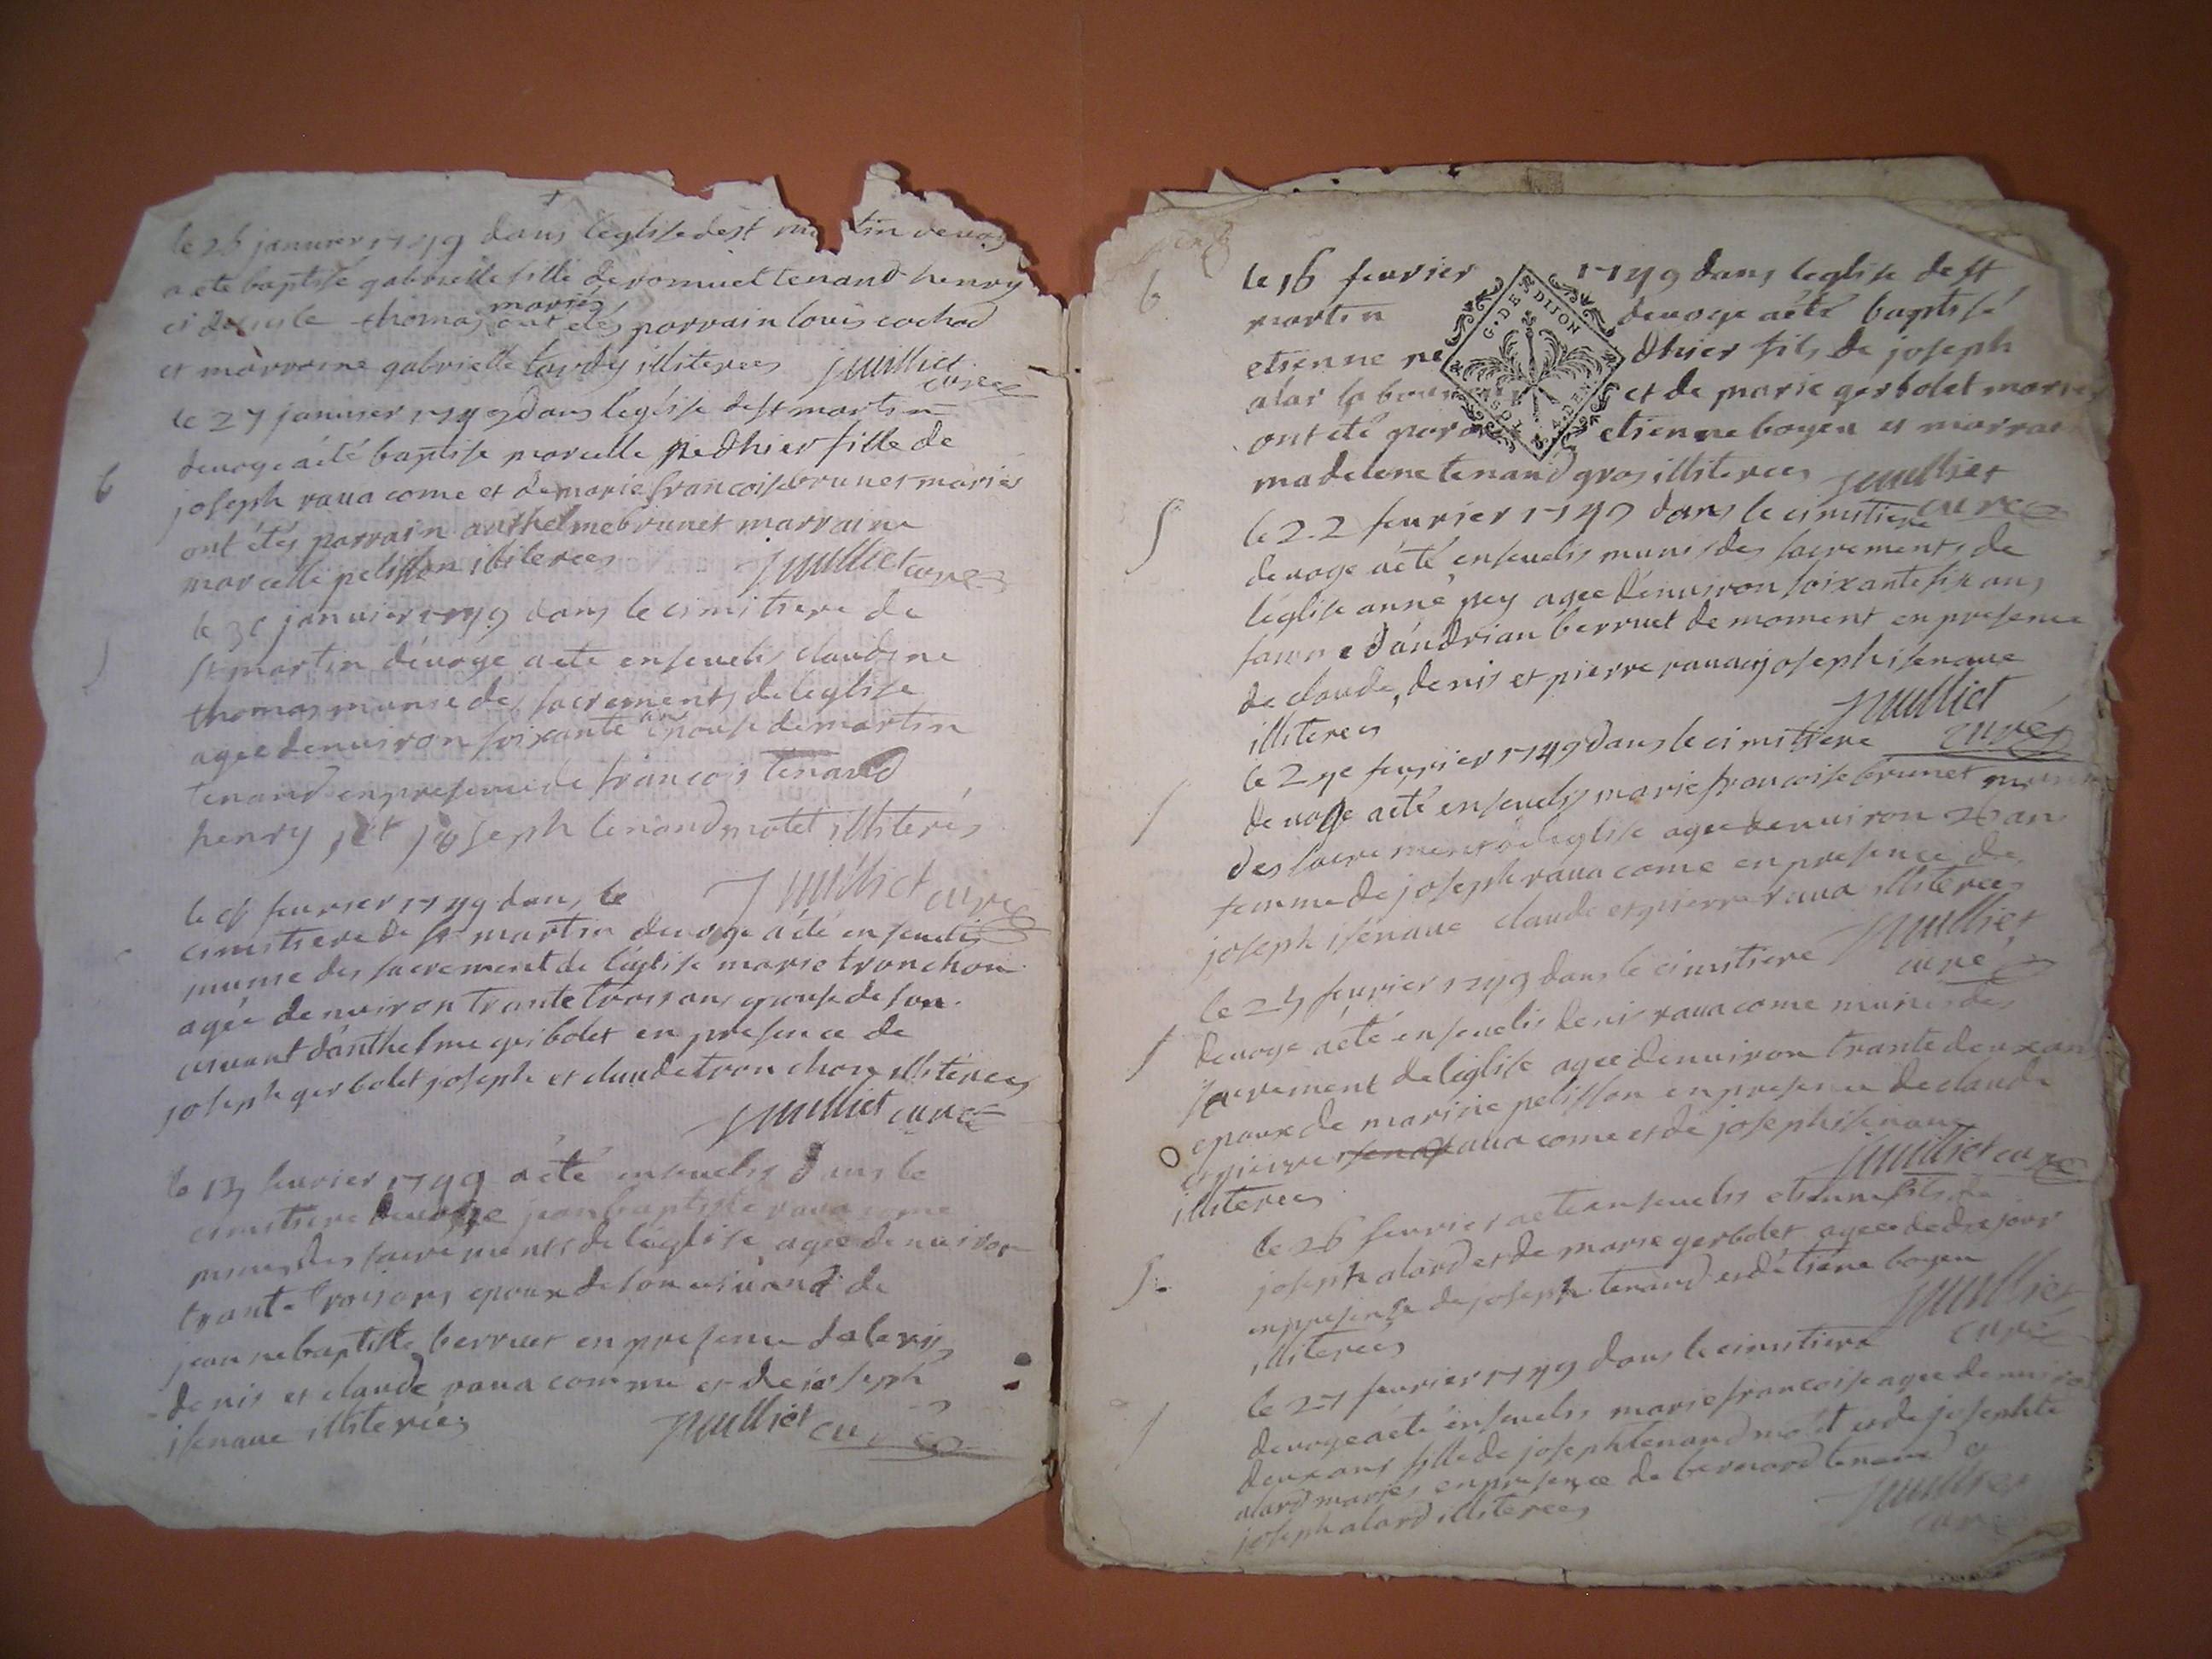 le 26 janvier 1749 dans leglise de st martin devog
a ete baptisé gabrielle fille de romuel tenand henry
et thomas mariés
ont étés parrain louis cochod
et marraine gabrielle tardy illiterees Juilliet
curee
le 27 janvier 1749 dans léglise de st martin
devoge aété baptise marcelle pedhier fille de
b
joseph rava come et de marie francoise brunet mariés
ont étés parrain anthelme brunet marraine
marcelle pelisson illiterees Juilliet cure
le janvier 1749 dans le cimitiere de
st martin dévoge aete ensevelis claudine
thomas munie des sacrements de leglise
agee denviron soixante ans epouse de martin
tenand en presence de francois tenand
henry et joseph tenand motet illiterés
le fevrier 1749 dans le Juilliet cure
cimitiere de st martin devoge a été ensevelis
munie des sacrement de léglise marie tronchon
agée denviron trante trois ans epouse de son
vivant dánthelme gerbolet en presence de
joseph gerbolet joseph et claude tronchon illiterees
Juilliet curé
le 13 fevrier 1749 aété ensevelis dans le
cimitiere devoge jean baptiste rava come
munis des sacrements de léglise agee denviron
trante trois ans epoux de son vivand de
jeanne baptiste berruet en presence de
denis et claude rava comme et de joseph
isenave illiterées Juilliet curé
b
le 16 fevrier 1749 dans leglise de st
martin devoge aété baptise
G. DE DIJON
etienne pe dhier fils de joseph
alar et de marie gerbolet maries
ont été para etienne boyen et marrai
madelene tenand gros illiterees Juilliet
le 22 fevrier 1749 dans le cimitiere curé
S
devoge aété ensevelis munis des sacrements de
léglise anne pey agee dénviron soixante six ans
dándrian berruet de moment en presence
de claude, denis et pierre rava joseph isenave
illiterees Juilliet
curé
le fevrier 1749 dans le cimitiere
devoge aété ensevelis marie francoise brunet
des sacrements de leglise agee denviron 26 an
femme de joseph rava come en presence de
joseph isenave claude et pierre rava illiterees
Juilliet
le fevrier 1749 dans le cimitiere curé
devoge aété ensevelis denis rava come munis des
sacrement de léglise agee denviron trante deux an
epoux de marie pelisson en presence de claude
et pierre rava come et de joseph isenave
illiterees Juilliet cure
le 26 fevrier aete ensevelis etienne fils de
S
joseph alard et de marie gerbolet agee de dix jour
en presense de joseph tenand et détiene boyen
illiterees Juilliet
curé
le 27 fevrier 1749 dans le cimitiere
devoge aeté ensevelis marie francoise agee denviro
deux ans fille de joseph tenand motet et de josephte
alard mariés en presence de bernard tenand et
joseph alard illiterees Juilliet
cure